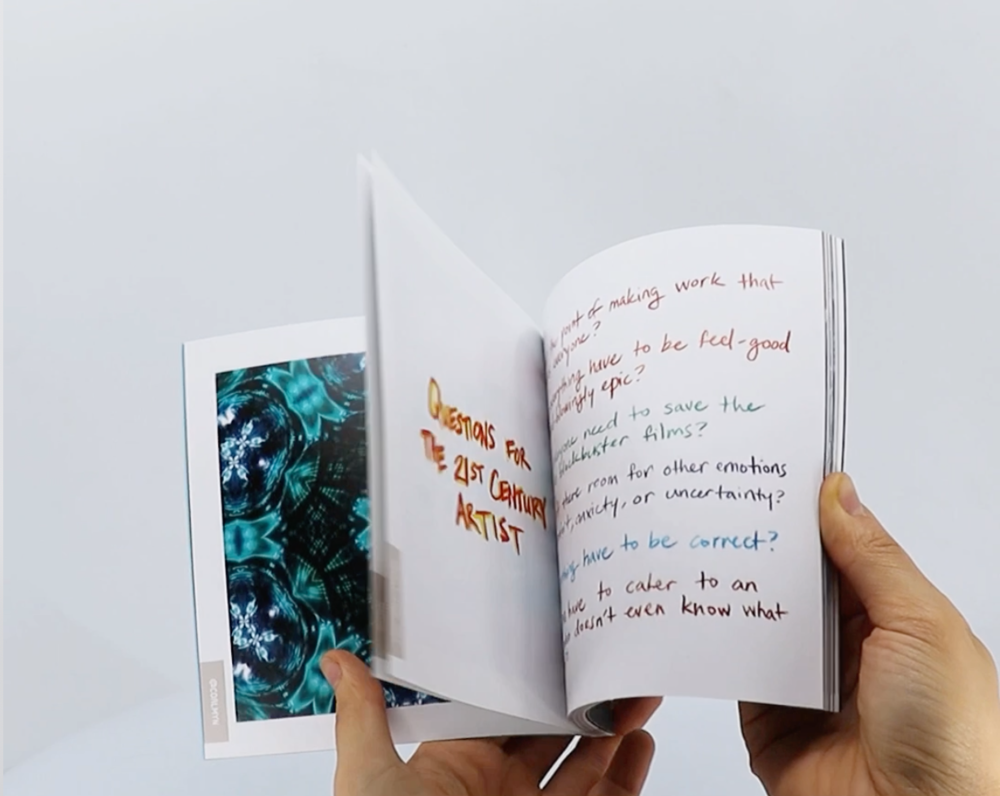 @COILMYN
QUESTIONS FOR
THE 21ST CENTURY
ARTIST
point of making work that
everyone?
have to be feel-good
epic?
need to save the
blockbuster films?
there room for other emotions
anxiety, or uncertainty?
have to be correct?
have to cater to an
doesn't even know what